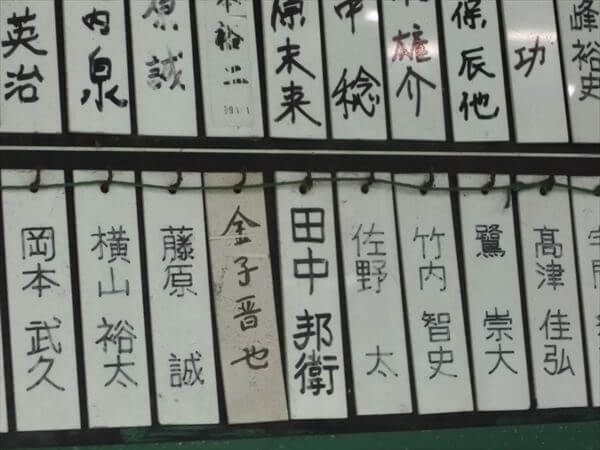 峰裕史
功
保辰他
雄介
中稔
原未来
裕
原誠
内泉
英治
髙津 佳弘
鷺 崇大
竹内 智史
佐野 太
田中 邦衛
金子晋也
藤原 誠
横山 裕太
岡本 武久